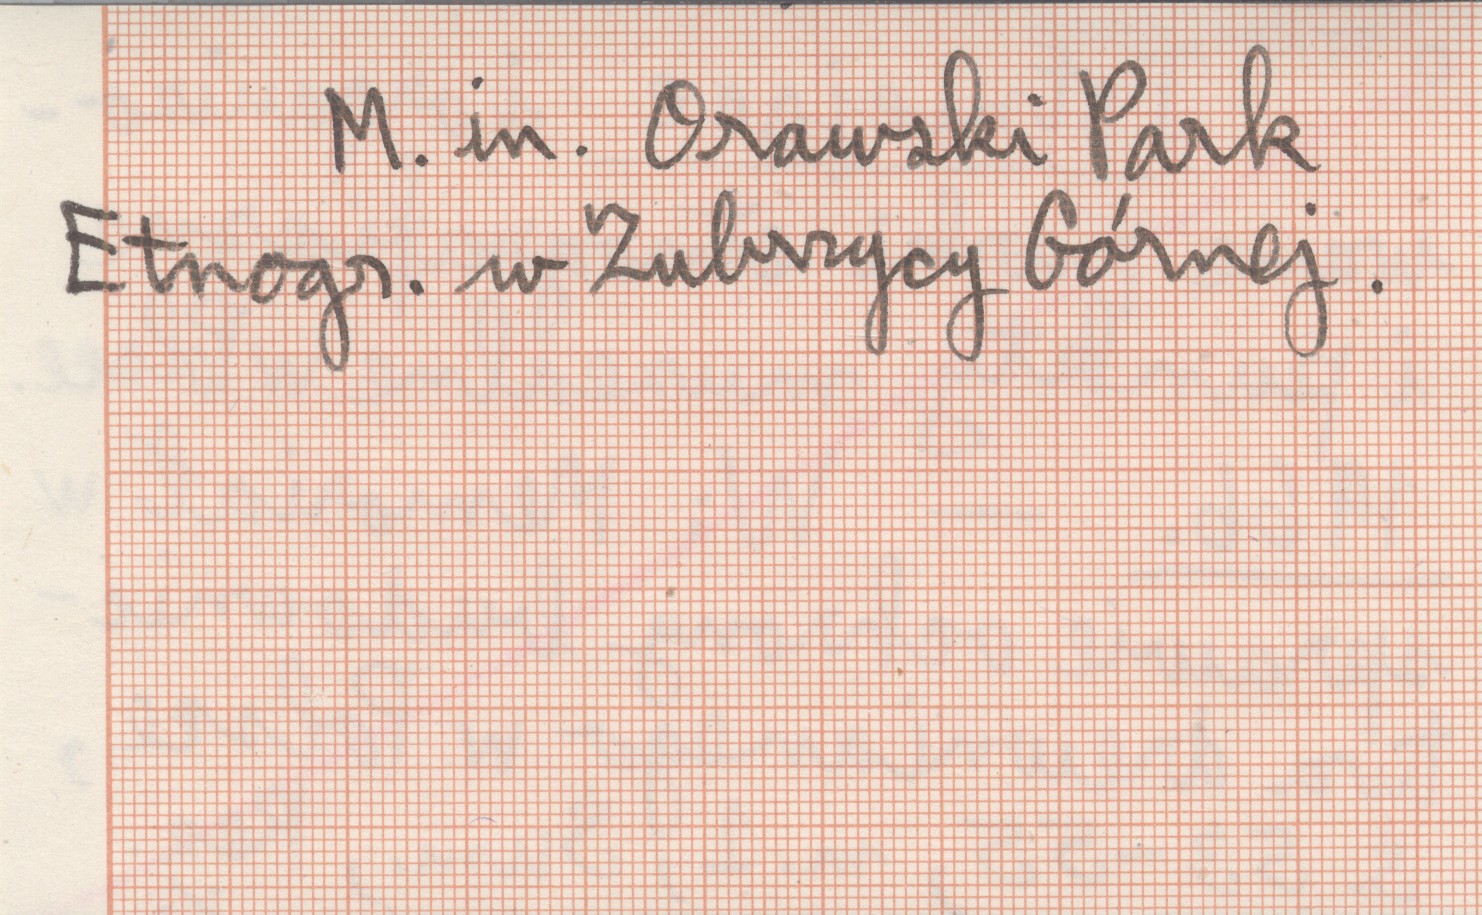 M. in. Orawski Park
Etnogr. w Zubrzycy Górnej.